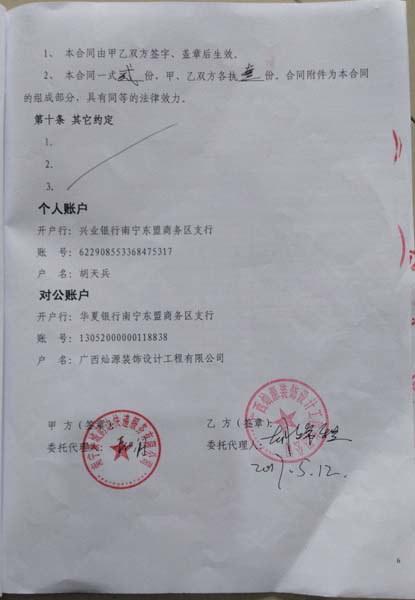 1、本合同由甲乙双方签字、盖章后生效。
2、本合同一式贰份,甲、乙双方各执壹份,合同附件为本合同
的组成部分,具有同等的法律效力。
第十条 其它约定
1.
2.
3.
个人账户
开户行:兴业银行南宁东盟商务区支行
账 号:622908553368475317
户 名:胡天兵
对公账户
开户行:华夏银行南宁东盟商务区支行
账 号:13052000000118838
户 名:广西灿源装饰设计工程有限公司
甲 方(签章):
乙 方(签章):
委托代理
委托代理人:
5.12.
6